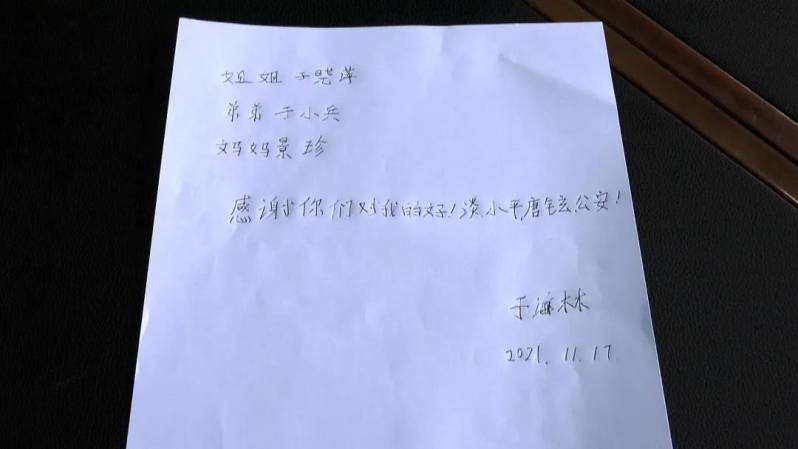 姐姐于晃萍
弟弟于小兵
妈妈景珍
感谢你们对我的好!淡小平,唐铉,公安!
于海林
2021.11.17